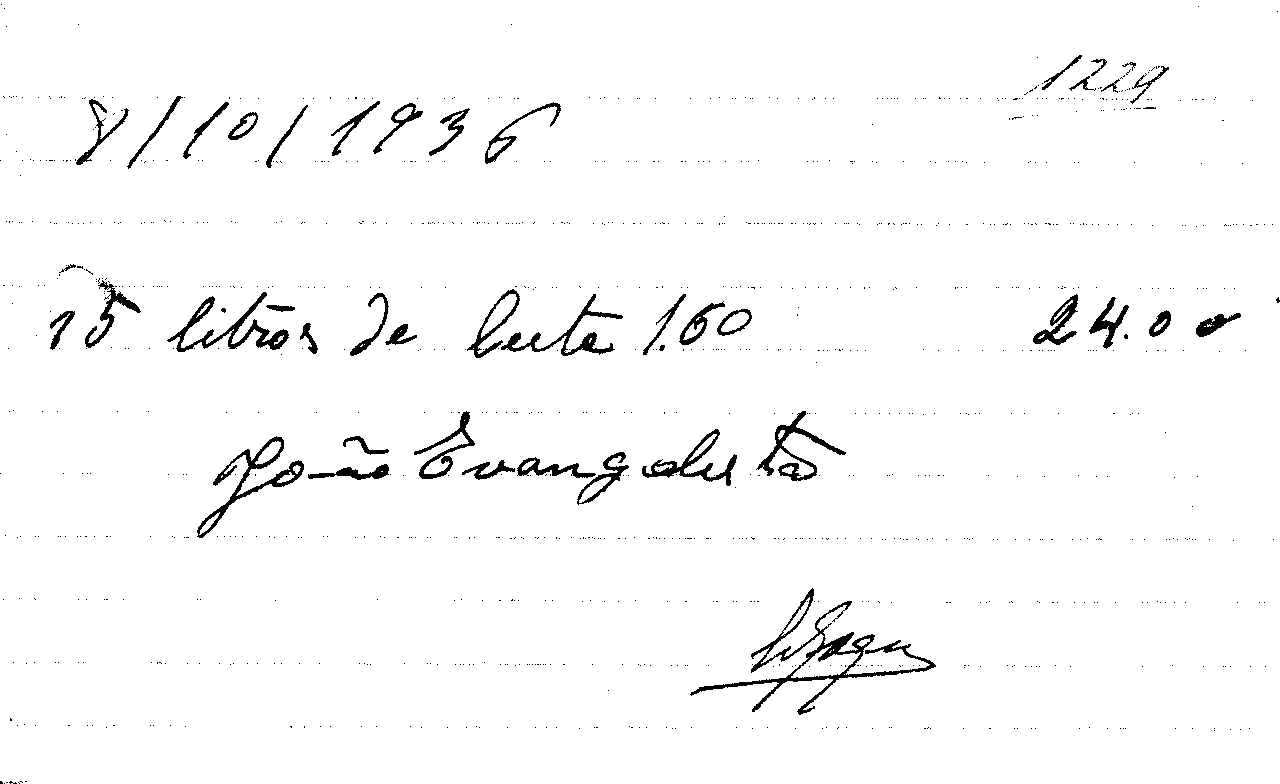 1229
8/10/1936
15 litros de leite 1.60 24.00
João Evangelista